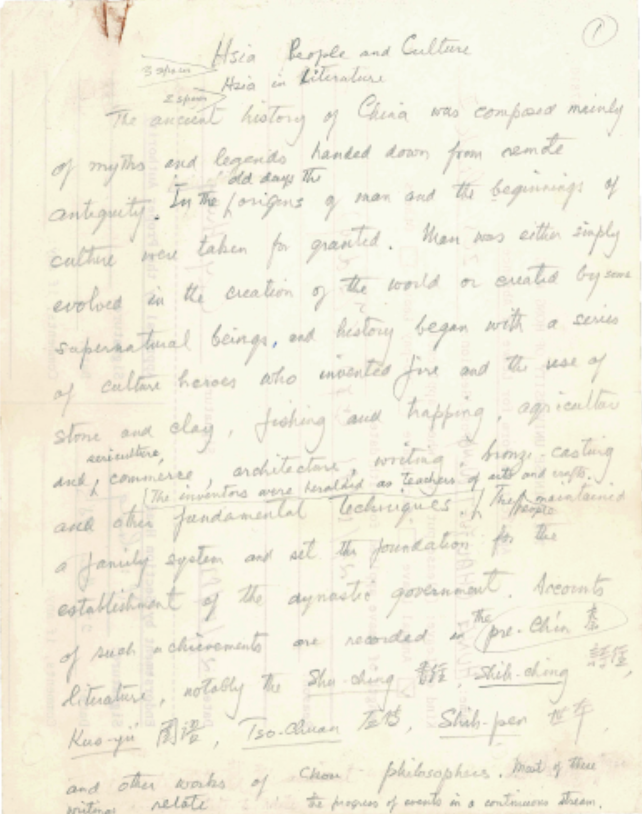 1
Hsia People and Culture
3 spaces
Hsia in Literature
2 spaces
The ancient history of China was composed mainly
of myths and legends handed down from remote
antiquity. In the old days the origins of man and the beginnings of
culture were taken for granted. Man was either simply
evolved in the creation of the world or created by some
supernatural beings, and history began with a series
of culture heroes who invented fire and the use of
stone and clay, fishing and trapping, agricultur
sericulture,
and commerce, architecture, writing, bronze-casting
The inventors were heralded as teachers of arts and crafts.
and other fundamental techniques. They maintained
people
a family system and set the foundation for the
establishment of the dynastic government. Accounts
of such achievements are recorded in the pre-Chin 秦
literature, notably the Shu-ching 書經, Shih-ching 詩經,
Kuo-yü 國語, Tso-Chuan 左传, Shih-pen 世本,
and other works of Chou philosophers. Most of these
writings relate the progress of events in a continuous stream.